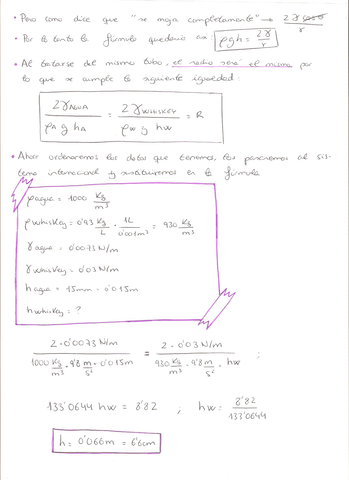 • Pero como dice que "se moja completamente" → 2γcosθ/r
• Por lo tanto la fórmula quedaría así: ρgh = 2γ/r
• Al tratarse del mismo tubo, el radio será el mismo por
lo que se cumple la siguiente igualdad:
2γAGUA/ρA g hA = 2γWHISKEY/ρW g hW = R
• Ahora ordenaremos los datos que tenemos, los pasaremos al sis-
tema internacional y sustituiremos en la fórmula
ρagua = 1000 Kg/m³
ρwhiskey = 0'93 Kg/L · 1L/0'001m³ = 930 Kg/m³
γagua = 0'0073 N/m
γwhiskey = 0'03 N/m
hagua = 15mm = 0'015m
hwhiskey = ?
2·0'0073 N/m / 1000 Kg/m³ · 9'8 m/s² · 0'015m = 2·0'03 N/m / 930 Kg/m³ · 9'8 m/s² · hw ;
133'0644 hw = 8'82 ; hw = 8'82/133'0644
h = 0'066m = 6'6cm